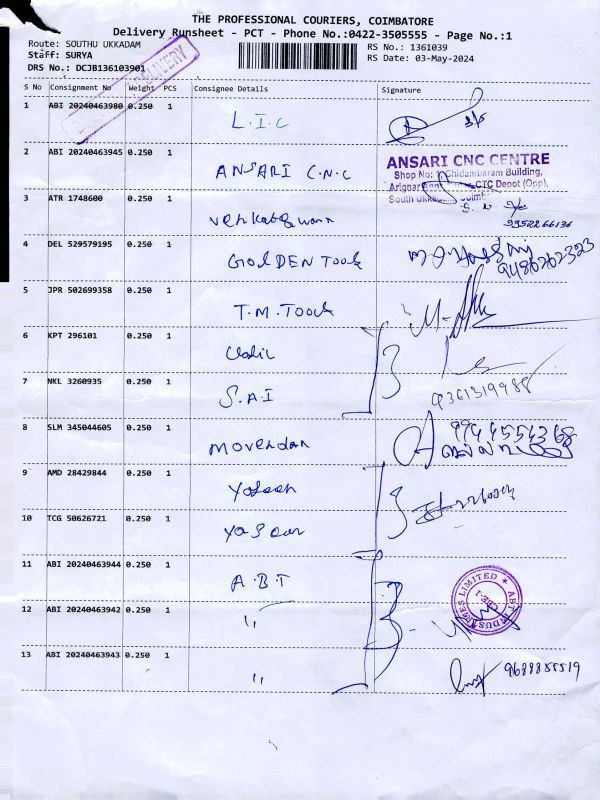 THE PROFESSIONAL COURIERS, COIMBATORE
Delivery Runsheet - PCT - Phone No.:0422-3505555 - Page No.:1
Route: SOUTHU UKKADAM
RS No.: 1361039
Staff: SURYA
RS Date: 03-May-2024
DRS No.: DCJB136103901
DELIVERY
S No Consignment No Weight PCS Consignee Details Signature
1 ABI 20240463980 0.250 1 L.I.C
2 ABI 20240463945 0.250 1 ANSARI C.N.C
ANSARI CNC CENTRE
Shop No: Chidambaram Building,
CTC Depot (Opp),
3 ATR 1748600 0.250 1
9952266136
4 DEL 529579195 0.250 1 GOLDEN Tools
9486262323
5 JPR 502699358 0.250 1 T.M.Tools
6 KPT 296101 0.250 1
7 NKL 3260935 0.250 1 S.A.I
9361319988
8 SLM 345044605 0.250 1 Movendan
9944554368
9 AMD 28429844 0.250 1
10 TCG 50626721 0.250 1
11 ABI 20240463944 0.250 1 A.B.T
ABT INDUSTRIES LIMITED
12 ABI 20240463942 0.250 1 "
13 ABI 20240463943 0.250 1 "
9688855519